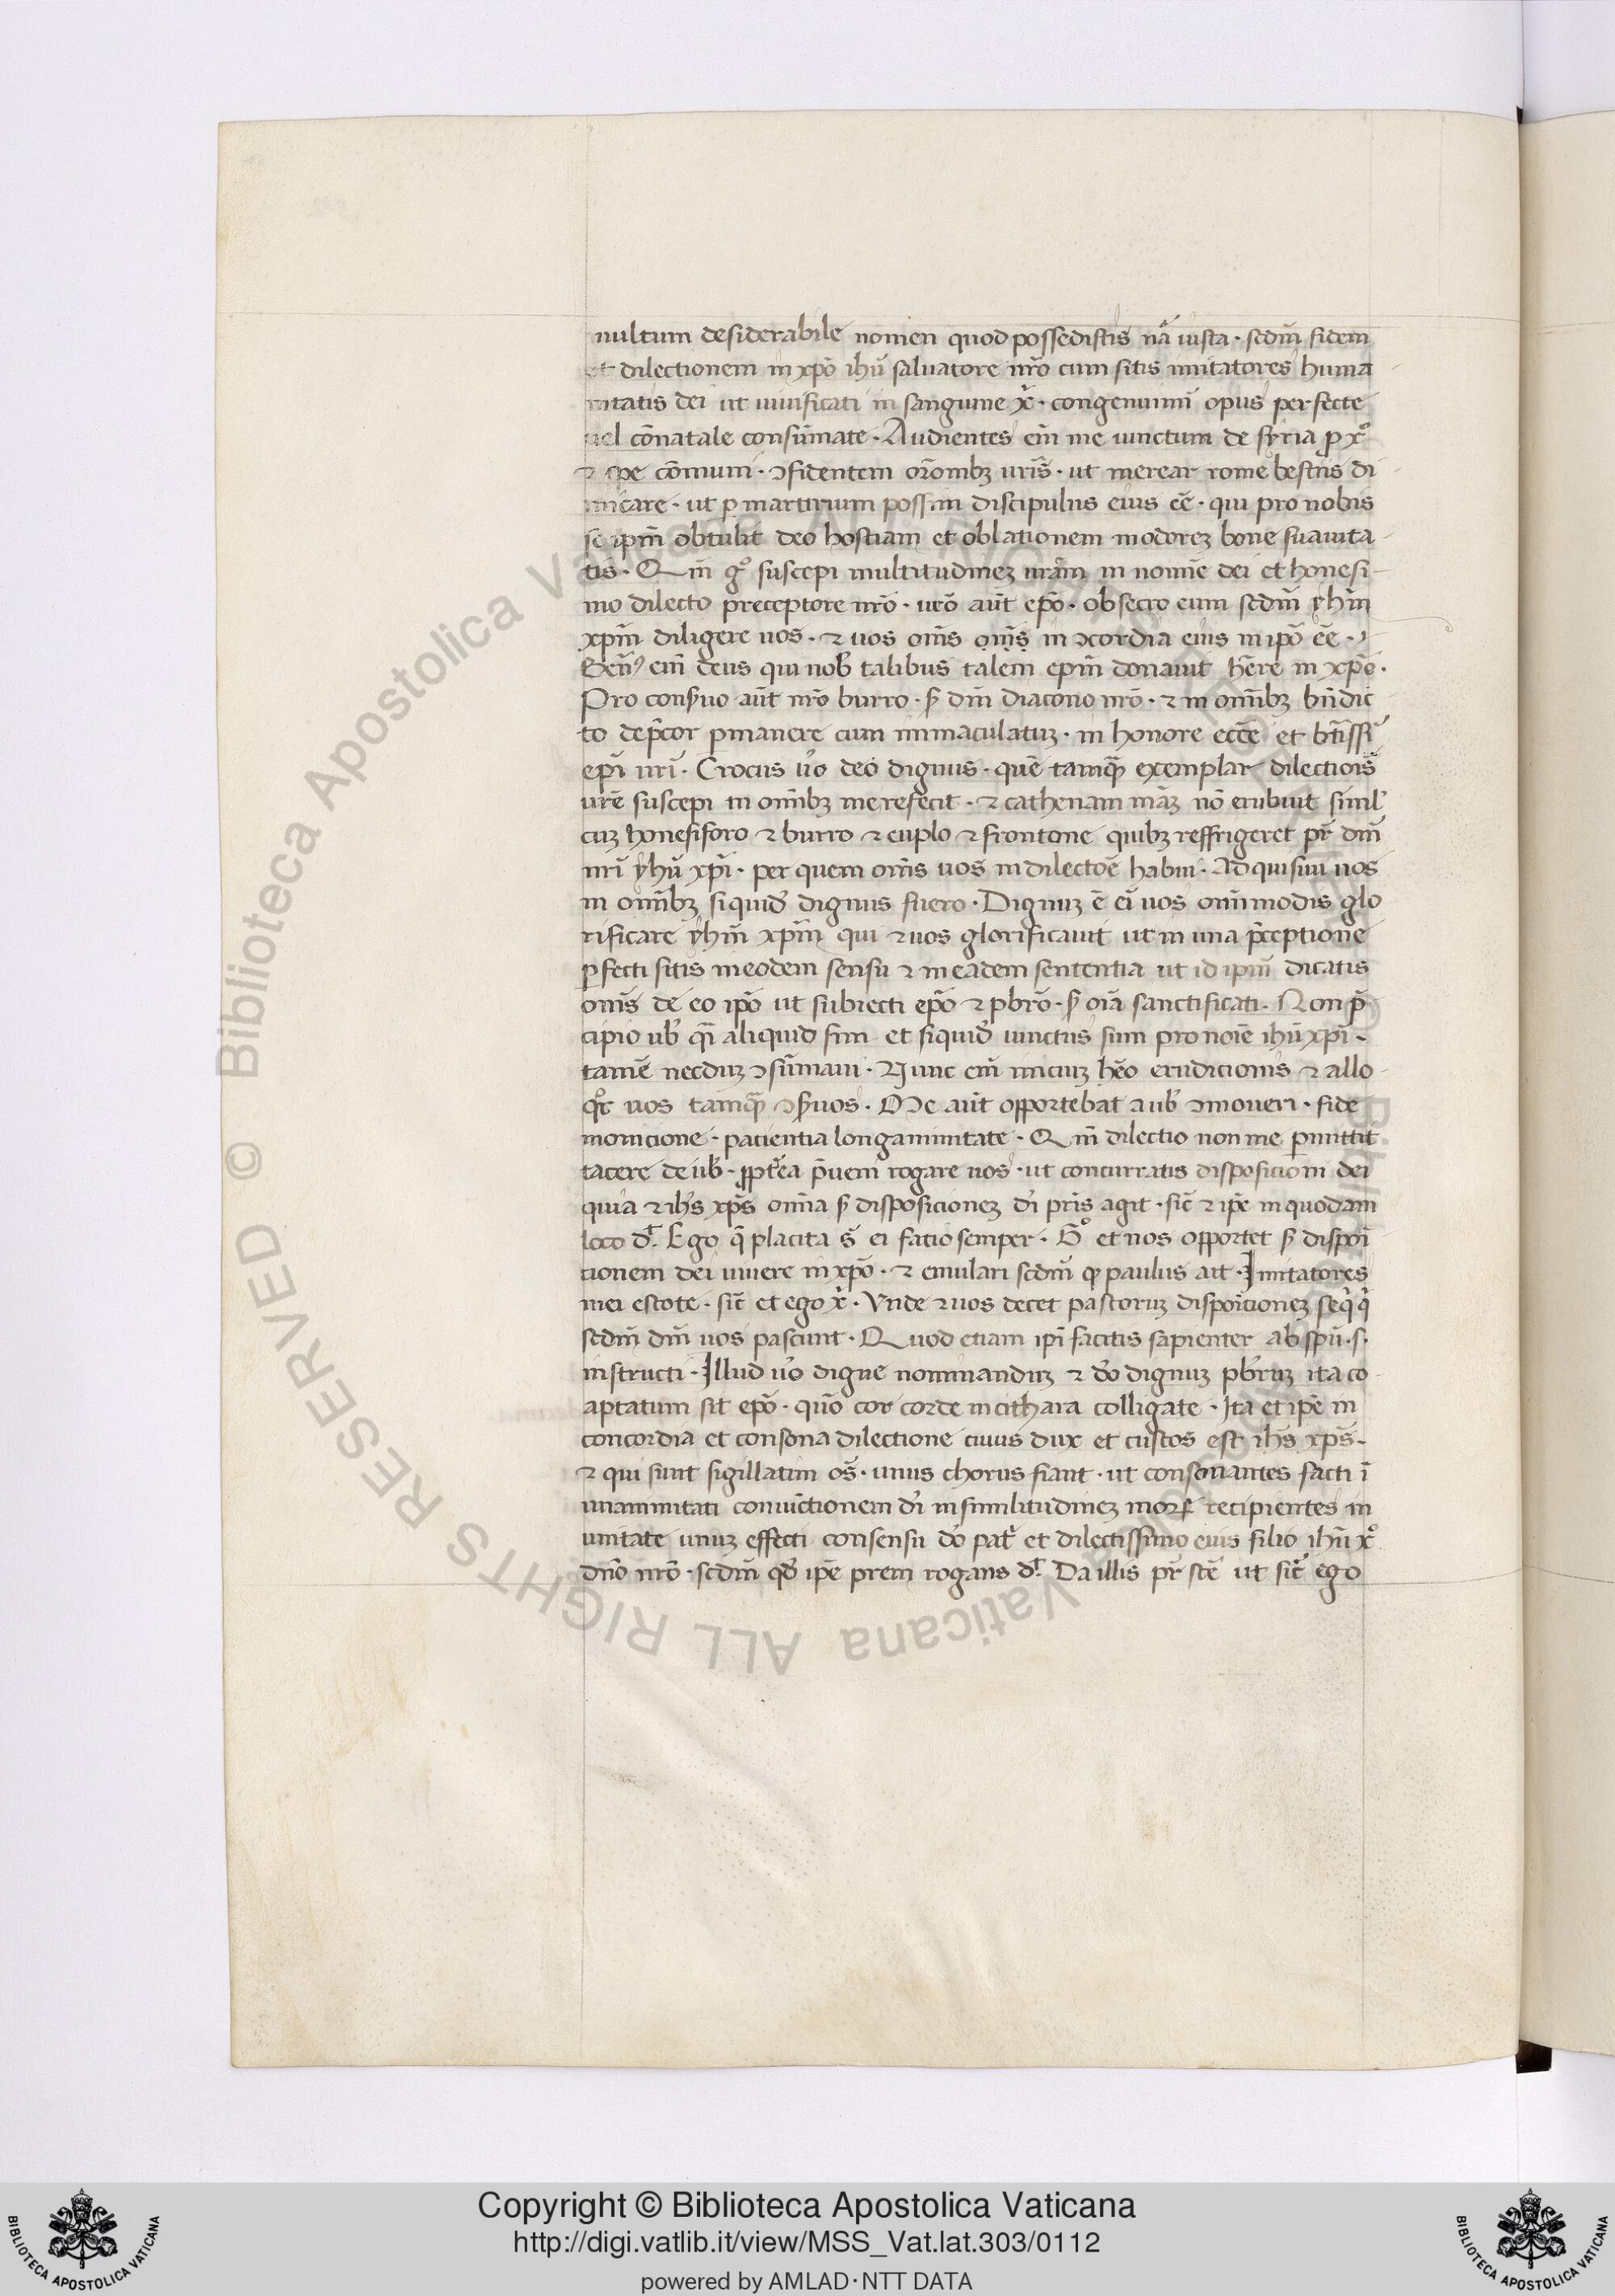 multum desiderabile nomen quod possedistis nã iusta · scdm̃ fidem
et dilectionem in xp̃o ihũ saluatore nr̃o cum sitis imitatores huma
nitatis dei ut uiuificati in sanguine x̃ · congenuinũ opus perfecte
uel cõnatale consũmate · Audientes em̃ me uinctum de syria ꝓ xᵒ
⁊ spe cõmuni · ꝯfidentem or̃onibꝫ ur̃is · ut merear rome bestiis di
micare · ut ꝑ martirium possim discipulus eius eẽ · qui pro nobis
se ipm̃ obtulit deo hostiam et oblationem in odoreꝫ bone suauita
tis · Qm̃ gᵒ suscepi multitudineꝫ ur̃am in nomine dei et honesi
mo dilecto preceptore nr̃o · ur̃o aũt ep̃o · obsecro eum scdm̃ yhm̃
xpm̃ diligere uos · ⁊ uos om̃s om̃s in ꝯcordia eius in ip̃o eẽ ·
Ben̄ꝰ em̃ deus qui nob̃ talibus talem epm̃ donauit hẽre in xp̃o ·
Pro conẜuo aũt nr̃o burro · ẜ dm̃ diacono nr̃o · ⁊ in om̃ibꝫ bñdic
to dep̃cor ꝑmanere eum immaculatuꝫ · in honore ecc̃e et bt̃issi
ep̃i ur̃i · Crocus ũo deo dignus · quẽ tamqꝫ exemplar dilectiõis
ur̃e suscepi in om̃ibꝫ me refecit · ⁊ cathenam mãꝫ nõ erubuit simil̃
cuꝫ honesiforo ⁊ burro ⁊ euplo ⁊ frontone quibꝫ reffrigeret pr̃ dm̃
nr̃i yhũ xp̃i · per quem om̃s uos in dilectõe habui · Adquisiui uos
in om̃ibꝫ siquid̃ dignus fuero · Dignuꝫ ẽ ei uos om̃imodis glo
rificare yhm̃ xpm̃ qui ⁊ uos glorificauit ut in una p̃ceptione
ꝑfecti sitis in eodem sensu ⁊ in eadem sententia ut id ipm̃ dicatis
om̃s de eo ip̃o ut subiecti ep̃o ⁊ pbr̃o · ẜ oĩa sanctificati · Non p̃
cipio ub̃ q̃i aliquid sim et siquid̃ uinctus sum pro noĩe ihũ xp̃i ·
tamẽ necduꝫ ꝯsũmaui · Nunc em̃ iniciuꝫ hẽo erudicionis ⁊ allo
qᵒr uos tamqꝫ ꝯẜuos · Me aũt opportebat a ub̃ ꝯmoueri · fide
monicione · pacientia longanimitate · Qm̃ dilectio non me ꝑmittit
tacere de ub̃ · ꝓpt̃ea p̃ueni rogare uos · ut concurratis disposicioni dei
quia ⁊ ihs̃ xp̃s omnia ẜ disposicioneꝫ di pr̃is agit · sic̃ ⁊ ip̃e in quodam
loco d̃t · Ego q̃ placita s̃ ei facio semper · Gᵒ et nos opportet ẜ dispoi
cionem dei uiuere in xp̃o · ⁊ emulari scdm̃ ꝙ paulus ait · Imitatores
mei estote · sic̃ et ego x̃ · Vnde ⁊ uos decet pastoruꝫ dispoĩcioneꝫ seq̃ q̃
scdm̃ dm̃ uos pascunt · Quod etiam ip̃i facitis sapienter ab spũ · s ·
instructi · Illud ũo digne nominanduꝫ ⁊ dõ dignuꝫ pbr̃iuꝫ ita co
aptatum sit ep̃o · quõ cor corde in cithara colligate · Ita et ip̃e in
concordia et consona dilectione cuius dux et custos est ihs̃ xp̃s ·
⁊ qui sunt sigillatim os̃ · unus chorus fiant · ut consonantes facti ĩ
unanimitati conuictionem di in similitudineꝫ morꝝ recipientes in
unitate unuꝫ effecti consensu dõ pat̃ et dilectissimo eius filio ihũ xᵒ
dño nr̃o · scdm̃ qd̃ ip̃e prem rogans d̃t · Da illis pr̃ sc̃e ut sic̃ ego
Copyright © Biblioteca Apostolica Vaticana
http://digi.vatlib.it/view/MSS_Vat.lat.303/0112
powered by AMLAD·NTT DATA
BIBLIOTECA APOSTOLICA VATICANA
BIBLIOTECA APOSTOLICA VATICANA
© Biblioteca Apostolica Vaticana ALL RIGHTS RESERVED